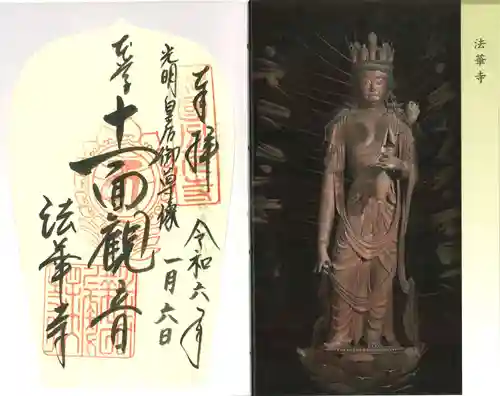 奉拝
令和六年
一月六日
光明皇后御尊様
本尊
十一面観音
法華寺
法華寺